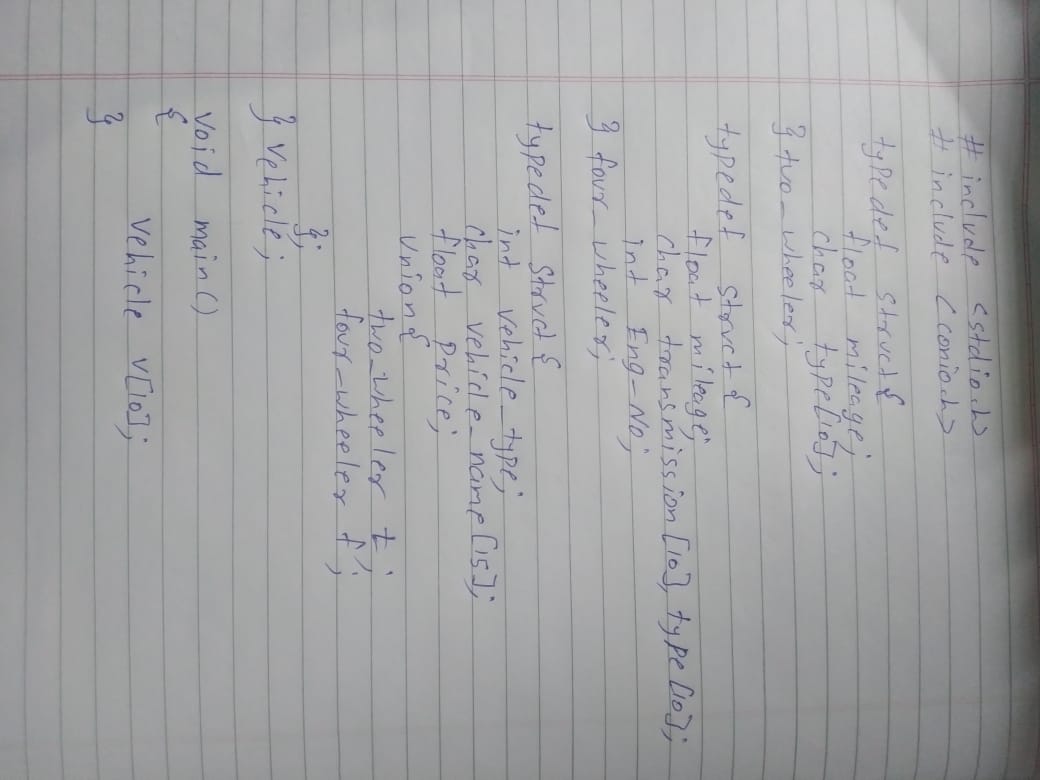 # include <stdio.h>
# include <conio.h>
typedef struct {
float mileage;
char type[10];
} two_wheeler;
typedef struct {
float mileage;
char transmission[10], type[10];
int Eng-No;
} four_wheeler;
typedef struct {
int vehicle_type;
char vehicle_name[15];
float price;
union {
two_wheeler t;
four_wheeler f;
};
} vehicle;
void main()
{
vehicle v[10];
}